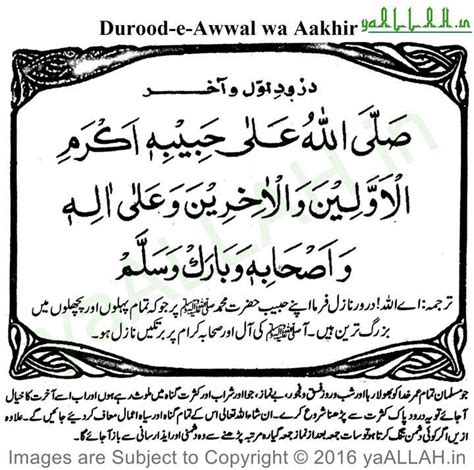 Durood-e-Awwal wa Aakhir yaALLAH.in
درود اول و آخر
صَلَّى اللهُ عَلٰى حَبِيْبِهٖ اَكْرَمِ
الْاَوَّلِيْنَ وَالْاٰخِرِيْنَ وَعَلٰى اٰلِهٖ
وَاَصْحَابِهٖ وَبَارَكَ وَسَلَّمْ
ترجمہ: اے اللہ! درود نازل فرما اپنے حبیب حضرت محمد ﷺ پر جو کہ تمام پہلوں اور پچھلوں میں
بزرگ ترین ہیں۔ آپ ﷺ کی آل اور صحابہ کرام پر برکتیں نازل ہو۔
جو مسلمان تمام عمر خدا کو بھولا رہا اور شب و روز فسق و فجور، بے نماز، جوا اور شراب اور کثرت گناہ میں ملوث رہے ہوں اور اب اسے آخرت کا خیال
آجائے تو یہ درود پاک کثرت سے پڑھنا شروع کرے۔ ان شاء اللہ تعالی اس کے تمام گناہ اور سیاہ اعمال معاف کر دیئے جائیں گے۔ علاوہ
ازیں اگر کوئی دشمن تنگ کرتا ہو تو سات جمعہ بعد از نماز جمعہ گیارہ سو مرتبہ پڑھنے سے وہ دشمنی اور ایذا رسانی سے باز آجائے گا۔
Images are Subject to Copyright © 2016 yaALLAH.in
yaALLAH.in